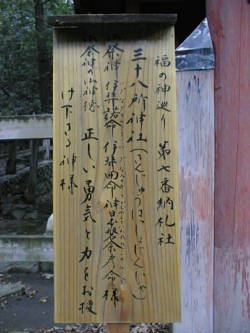 福の神巡り 第七番納札社
三十八所神社(さんじゅうはっしょじんじゃ)
祭神 伊弉諾命 伊弉冉命 神日本磐余彦命様
御祭神の御神徳 正しい勇気と力をお授
け下さる神様